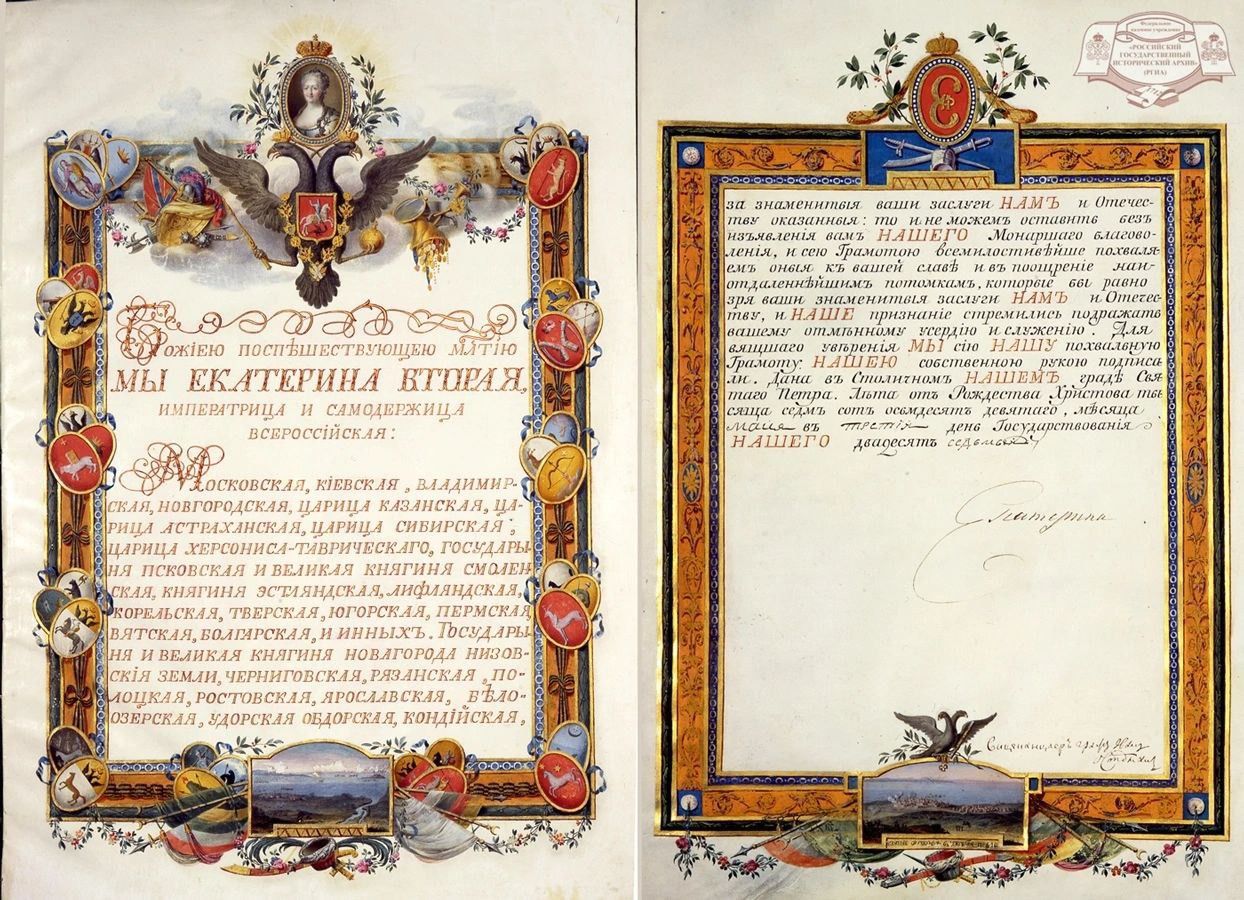 БОЖІЕЮ ПОСПѢШЕСТВУЮЩЕЮ МЛТІЮ
МЫ ЕКАТЕРИНА ВТОРАЯ,
ИМПЕРАТРИЦА И САМОДЕРЖИЦА
ВСЕРОССІЙСКАЯ:
МОСКОВСКАЯ, КІЕВСКАЯ, ВЛАДИМИР-
СКАЯ, НОВГОРОДСКАЯ, ЦАРИЦА КАЗАНСКАЯ, ЦА-
РИЦА АСТРАХАНСКАЯ, ЦАРИЦА СИБИРСКАЯ,
ЦАРИЦА ХЕРСОНИСА-ТАВРИЧЕСКАГО, ГОСУДАРЫ-
НЯ ПСКОВСКАЯ И ВЕЛИКАЯ КНЯГИНЯ СМОЛЕН
СКАЯ, КНЯГИНЯ ЭСТЛЯНДСКАЯ, ЛИФЛЯНДСКАЯ,
КОРЕЛЬСКАЯ, ТВЕРСКАЯ, ЮГОРСКАЯ, ПЕРМСКАЯ,
ВЯТСКАЯ, БОЛГАРСКАЯ, И ИННЫХЪ. ГОСУДАРЫ-
НЯ И ВЕЛИКАЯ КНЯГИНЯ НОВАГОРОДА НИЗОВ-
СКІЯ ЗЕМЛИ, ЧЕРНИГОВСКАЯ, РЯЗАНСКАЯ, ПО-
ЛОЦКАЯ, РОСТОВСКАЯ, ЯРОСЛАВСКАЯ, БѢЛО-
ОЗЕРСКАЯ, УДОРСКАЯ ОБДОРСКАЯ, КОНДІЙСКАЯ,
Федеральное
казенное учреждение
«РОССИЙСКИЙ
ГОСУДАРСТВЕННЫЙ
ИСТОРИЧЕСКИЙ АРХИВ»
(РГИА)
за знаменитыя ваши заслуги НАМЪ и Отечес-
тву оказанныя: то и не можемъ оставить безъ
изъявленія вамъ НАШЕГО Монаршаго благово-
ленія, и сею Грамотою всемилостивѣйше похваля-
емъ оныя къ вашей славѣ и въ поощреніе наи-
отдаленнѣйшимъ потомкамъ, которые бы равно
зря ваши знаменитыя заслуги НАМЪ и Отечес-
тву, и НАШЕ признаніе стремились подражать
вашему отмѣнному усердію и служенію. Для
вящшаго увѣренія МЫ сію НАШУ похвальную
Грамоту НАШЕЮ собственною рукою подписа
ли. Дана въ Столичномъ НАШЕМЪ градѣ Свя
таго Петра. Лѣта отъ Рождества Христова ты
сяща седмъ сотъ осьмдесятъ девятаго, мѣсяца
маия въ третій день Государствованія
НАШЕГО двадесятъ седьмое
Екатерина
Вицеканцлеръ графъ Иван